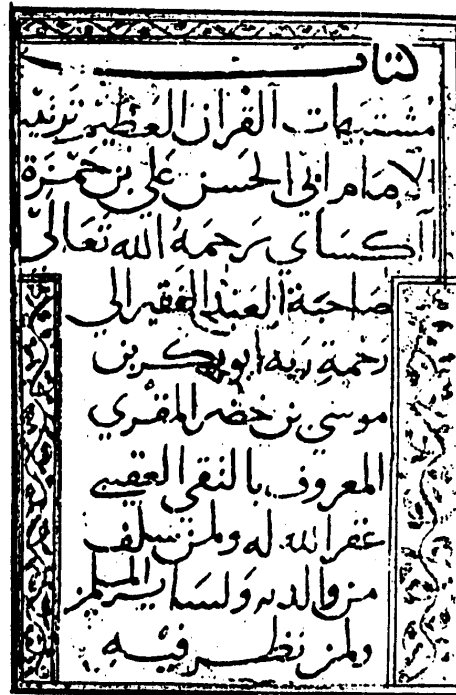 كتاب
مشتبهات القرآن العظيم ترتيب
الإمام أبي الحسن علي بن حمزة
الكساي رحمه الله تعالى
صاحبه العبد الفقير إلى
رحمة ربه أبو بكر بن
موسى بن خضر المقري
المعروف بالتقي
غفر الله له ولمن سلف
من والديه ولساير المسلمين
ولمن نظر فيه